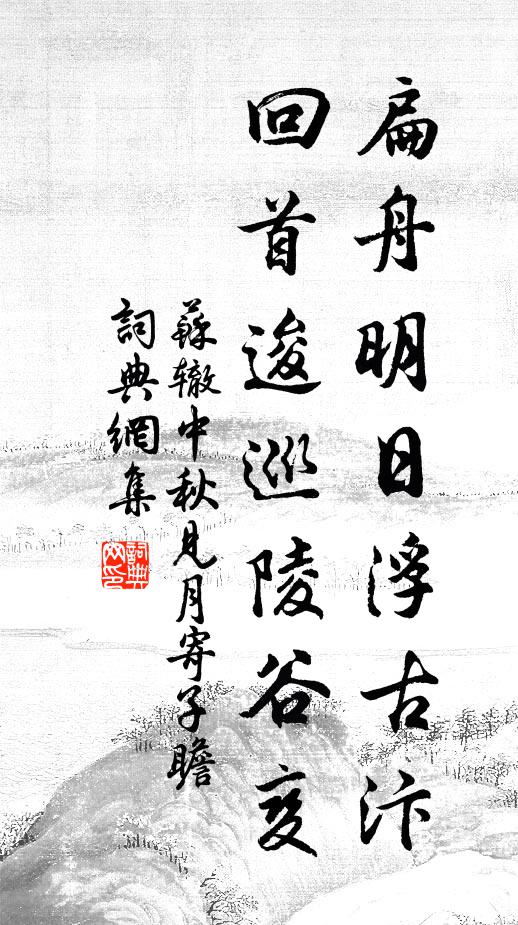 扁舟明日浮古汴
回首逡巡陵谷变
蘇辙中秋見月寄子瞻
詞典網集
詞典网印